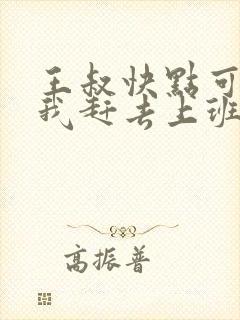 王叔快點可
我赶去上班
高振普